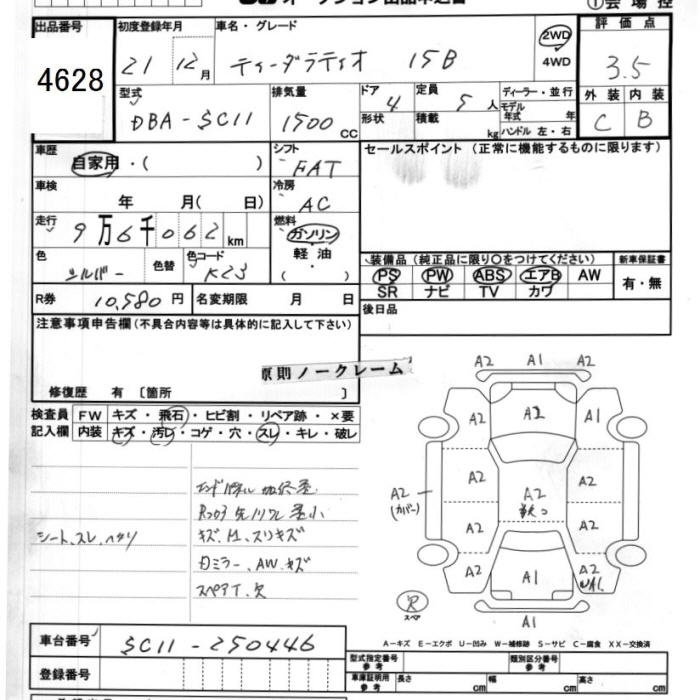 オークション出品申込書
① 会場控
出品番号 4628
初度登録年月 21 12月
車名・グレード ティーダラティオ 15B
2WD 4WD
評価点 3.5
外装 内装
C B
型式 DBA-SC11
排気量 1500 CC
ドア 4
形状
定員 5 人
積載 kg
ディーラー・並行
モデル年式 年
ハンドル 左・右
車歴 自家用・( )
シフト FAT
セールスポイント (正常に機能するものに限ります)
車検 年 月( 日)
冷房 AC
走行 9万6千062 km
燃料 ガソリン・軽油・( )
色 シルバー 色替
色コード K23
装備品 (純正品に限り○をつけてください)
PS PW ABS エアB AW
SR ナビ TV カワ
新車保証書 有・無
R券 10,580 円
名変期限 月 日
後日品
注意事項申告欄 (不具合内容等は具体的に記入して下さい)
原則ノークレーム
修復歴 有 〔箇所 〕
検査員記入欄
FW キズ・飛石・ヒビ割・リペア跡・×要
内装 キズ・汚レ・コゲ・穴・スレ・キレ・破レ
シート、スレ、ヘタリ
スペアT、欠
A2 A1 A2
A2 A2 A1
A2 A2 A2
A2 (カバー)
A2 A2
A2 A1 A2
A1
スペア
A−キズ E−エクボ U−凹み W−補修跡 S−サビ C−腐食 XX−交換済
車台番号 SC11-250446
登録番号
型式指定番号 参考
類別区分番号 参考
車庫証明用 参考
長さ cm 幅 cm 高さ cm